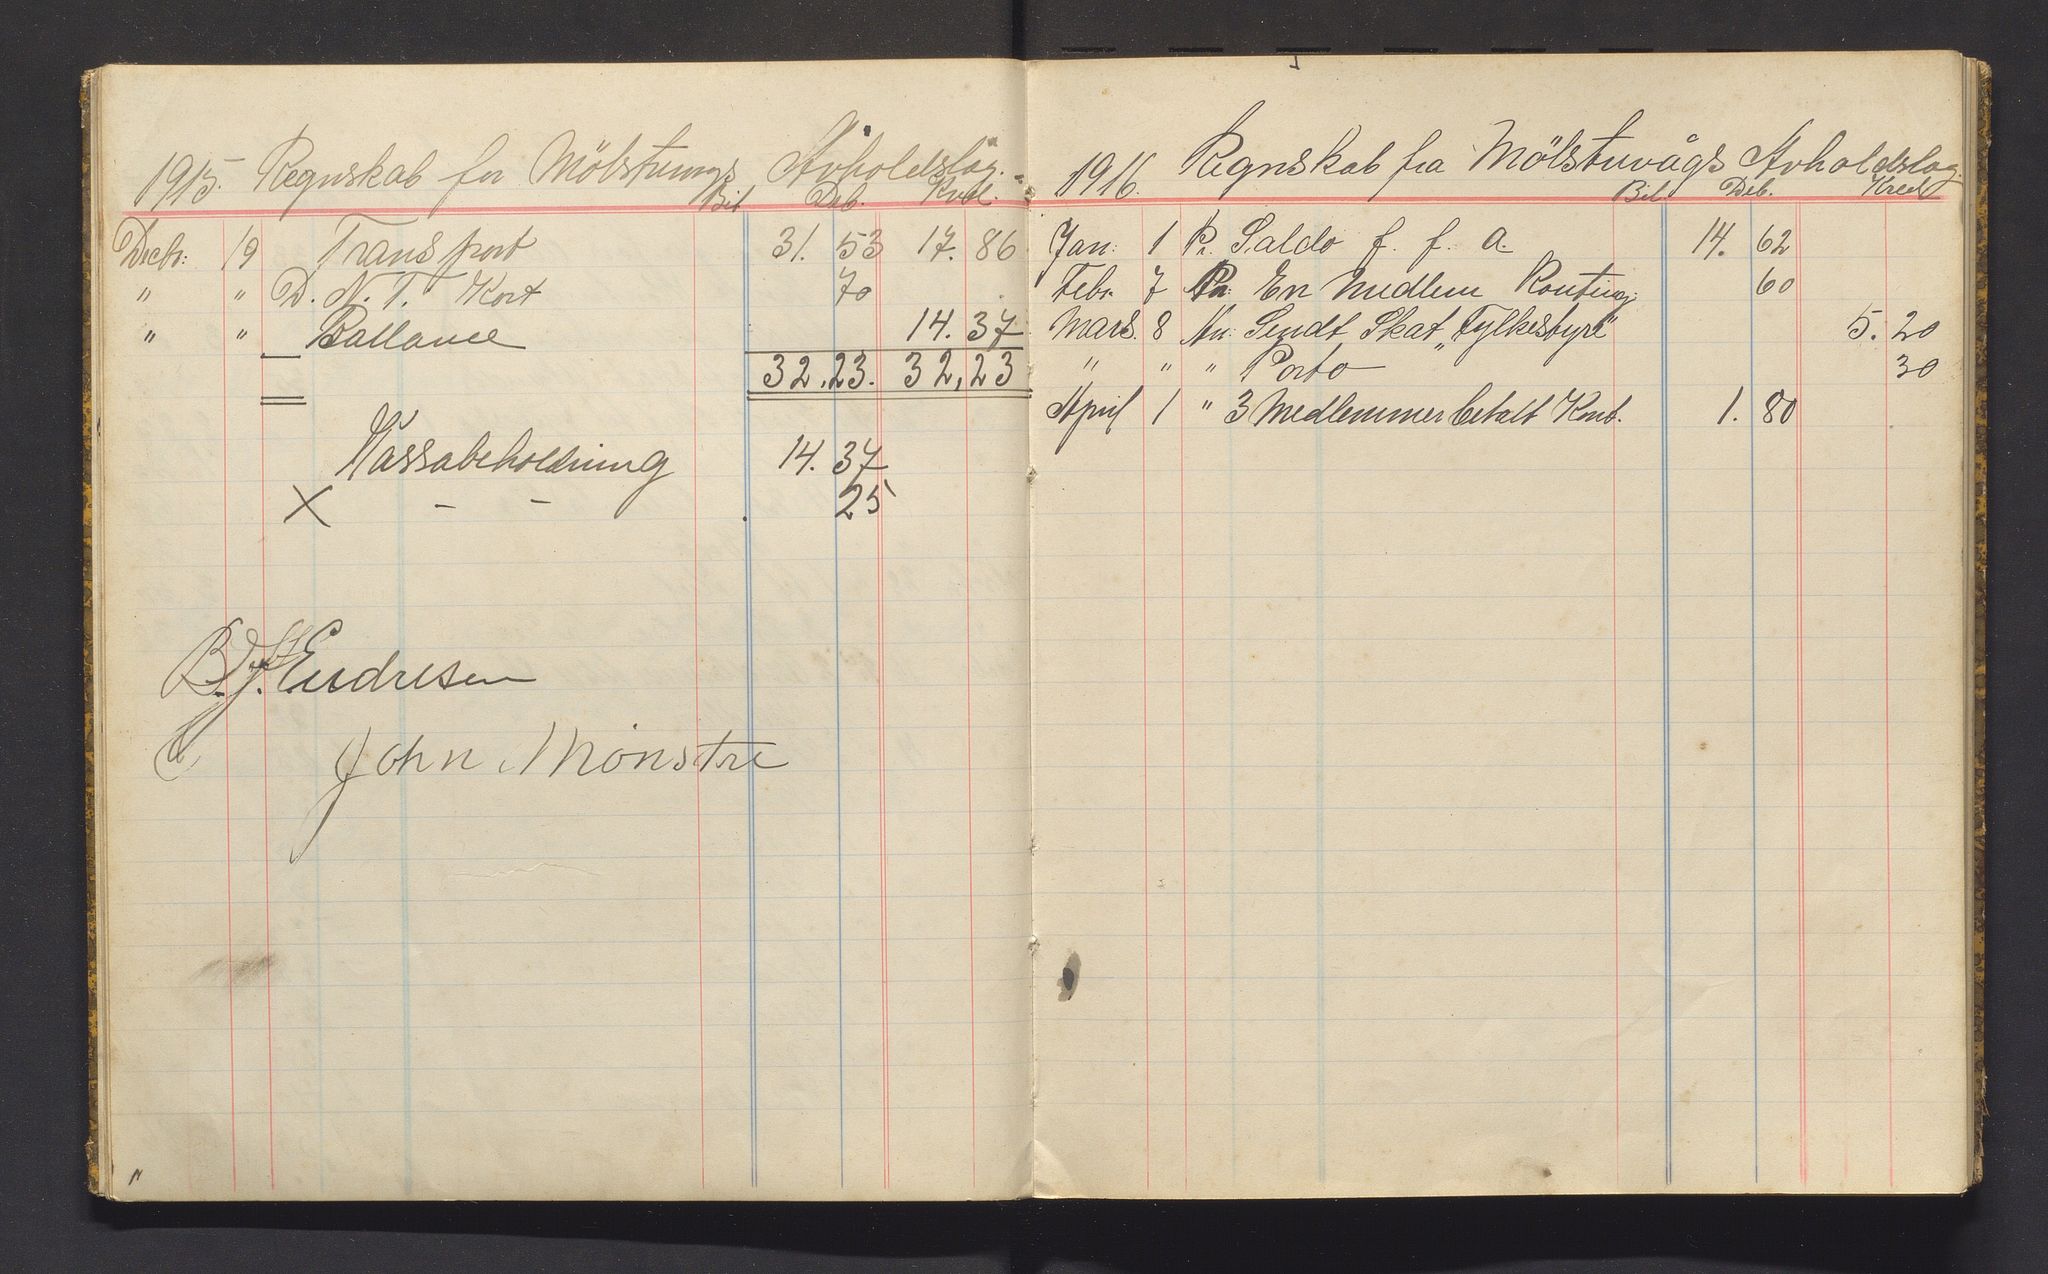 1915. Regnskab for Mölstrevågs Avholdslag.
Bil Deb. Kred.
Decbr: 19 Transport 31. 53 17. 86
" " D. N. T. Kort 70
" " Ballance 14. 37
32.23. 32,23
Kassabeholdning 14. 37
X - - 25
B. J. Endresen
John Mönstre
1916. Regnskab fra Mölstrevågs Avholdslag.
Bil Deb. Kred
Jan: 1 Pr. Saldo f. f. A. 14. 62
Febr. 7 Pr. En Medlem Konting: 60
Mars. 8 An: Sendt Skat "Fylkestyre" 5. 20
" " " Porto 30
April 1 " 3 Medlemmer betalt Kont. 1. 80